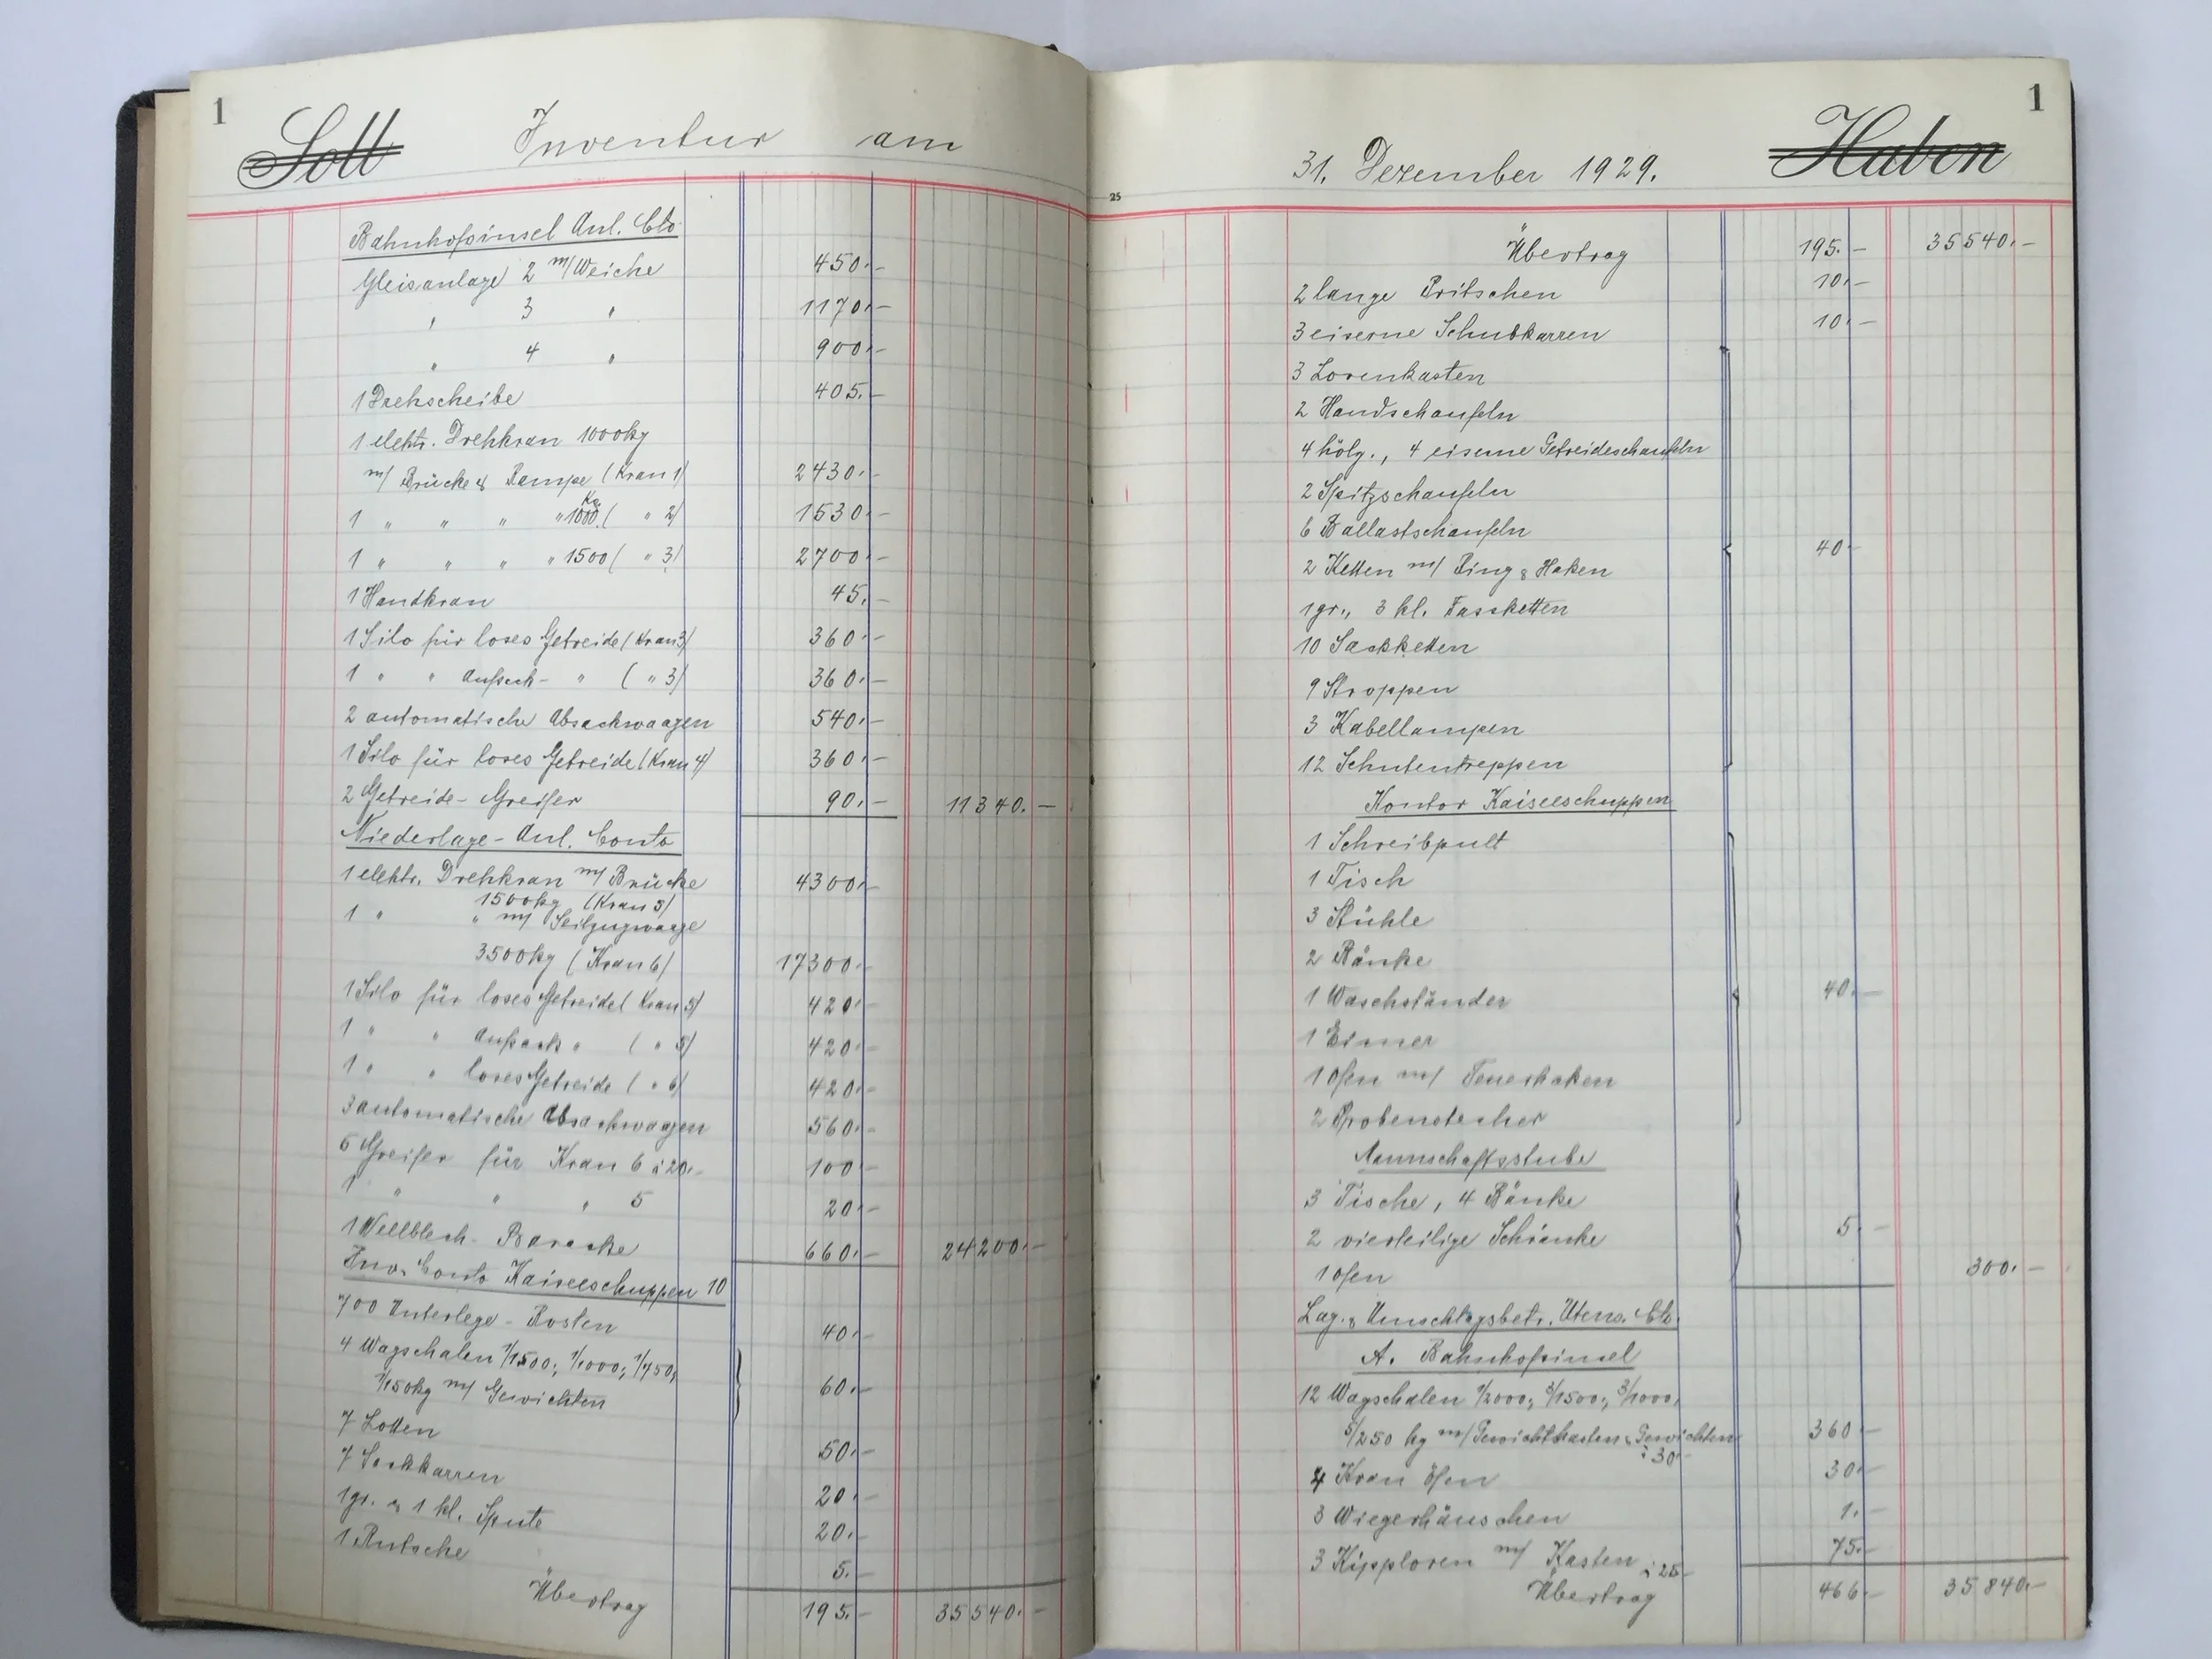 1
Soll Inventur am
Bahnhofsinsel Anl. Cto.
Gleisanlage 2 m/Weiche 450.-
" 3 " 1170.-
" 4 " 900.-
1 Drehscheibe 405.-
1 elektr. Drehkran 1000kg
m/ Brücke & Rampe (Kran 1) 2430.-
1 " " " " 1000 Kg ( " 2) 1530.-
1 " " " " 1500 ( " 3) 2700.-
1 Handkran 45.-
1 Silo für loses Getreide (Kran 3) 360.-
1 " " Aufsack- " ( " 3) 360.-
2 automatische Absackwaagen 540.-
1 Silo für loses Getreide (Kran 4) 360.-
2 Getreide-Greifer 90.- 11340.-
Niederlage-Anl. Conto
1 elektr. Drehkran m/ Brücke 4300.-
1500kg (Kran 5)
1 " " m/ Seilzugwaage
3500kg (Kran 6) 17300.-
1 Silo für loses Getreide (Kran 5) 420.-
1 " " Aufsack " ( " 5) 420.-
1 " " loses Getreide ( " 6) 420.-
3 automatische Absackwaagen 560.-
5 Greifer für Kran 6 à 20.- 100.-
1 " " " 5 20.-
1 Wellblech-Baracke 660.- 24200.-
Inv. Conto Kaiseeschuppen 10
700 Unterlege-Rosten 40.-
4 Wagschalen 1/1500; 1/1000; 1/750;
1/150kg m/ Gewichten 60.-
7 Lotten 50.-
7 Sackkarren 20.-
1 gr. & 1 kl. Spute 20.-
1 Rutsche 5.-
Übertrag 195.- 35540.-
1
25
31. Dezember 1929. Haben
Übertrag 195.- 35540.-
2 lange Pritschen 10.-
3 eiserne Schubkarren 10.-
3 Lorenkasten
2 Handschaufeln
4 hölz., 4 eiserne Getreideschaufeln
2 Spitzschaufeln
6 Ballastschaufeln
2 Ketten m/ Ring & Haken 40.-
1 gr., 3 kl. Fassketten
10 Sackketten
9 Stroppen
3 Kabellampen
12 Schutentreppen
Kontor Kaiseeschuppen
1 Schreibpult
1 Tisch
3 Stühle
2 Bänke
1 Waschständer 40.-
1 Eimer
1 Ofen m/ Feuerhaken
2 Probenstecher
Mannschaftsstube
3 Tische, 4 Bänke
2 vierteilige Schränke 5.-
1 Ofen 300.-
Lag. & Umschlagsbetr. Utens. Cto.
A. Bahnhofsinsel
12 Wagschalen 1/2000; 3/1500; 3/1000;
5/250 kg m/ Gewichtkasten & Gewichten à 30.- 360.-
4 Kran Öfen 30.-
3 Wiegerhäuschen 1.-
3 Kipploren m/ Kasten à 25.- 75.-
Übertrag 466.- 35840.-